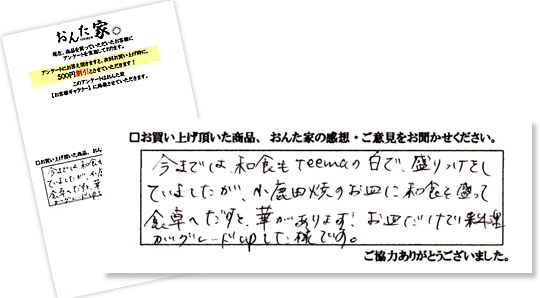 おんた家
現在、商品を買っていただいたお客様に
アンケートを実施しております。
アンケートにお答え頂きますと、次回お買い上げ時に、
500円割引とさせていただきます！
このアンケートはおんた家
【お客様ギャラリー】に掲載させていただきます。
□お買い上げ頂いた商品、おん
今までは和食も
していましたが、小鹿
食卓へだすと、華
□お買い上げ頂いた商品、おんた家の感想・ご意見をお聞かせください。
今までは、和食もTeemaの白で、盛りつけをし
ていましたが、小鹿田焼のお皿に和食を盛って
食卓へだすと、華があります！お皿だけで料理
がグレードupした様です。
ご協力ありがとうございました。